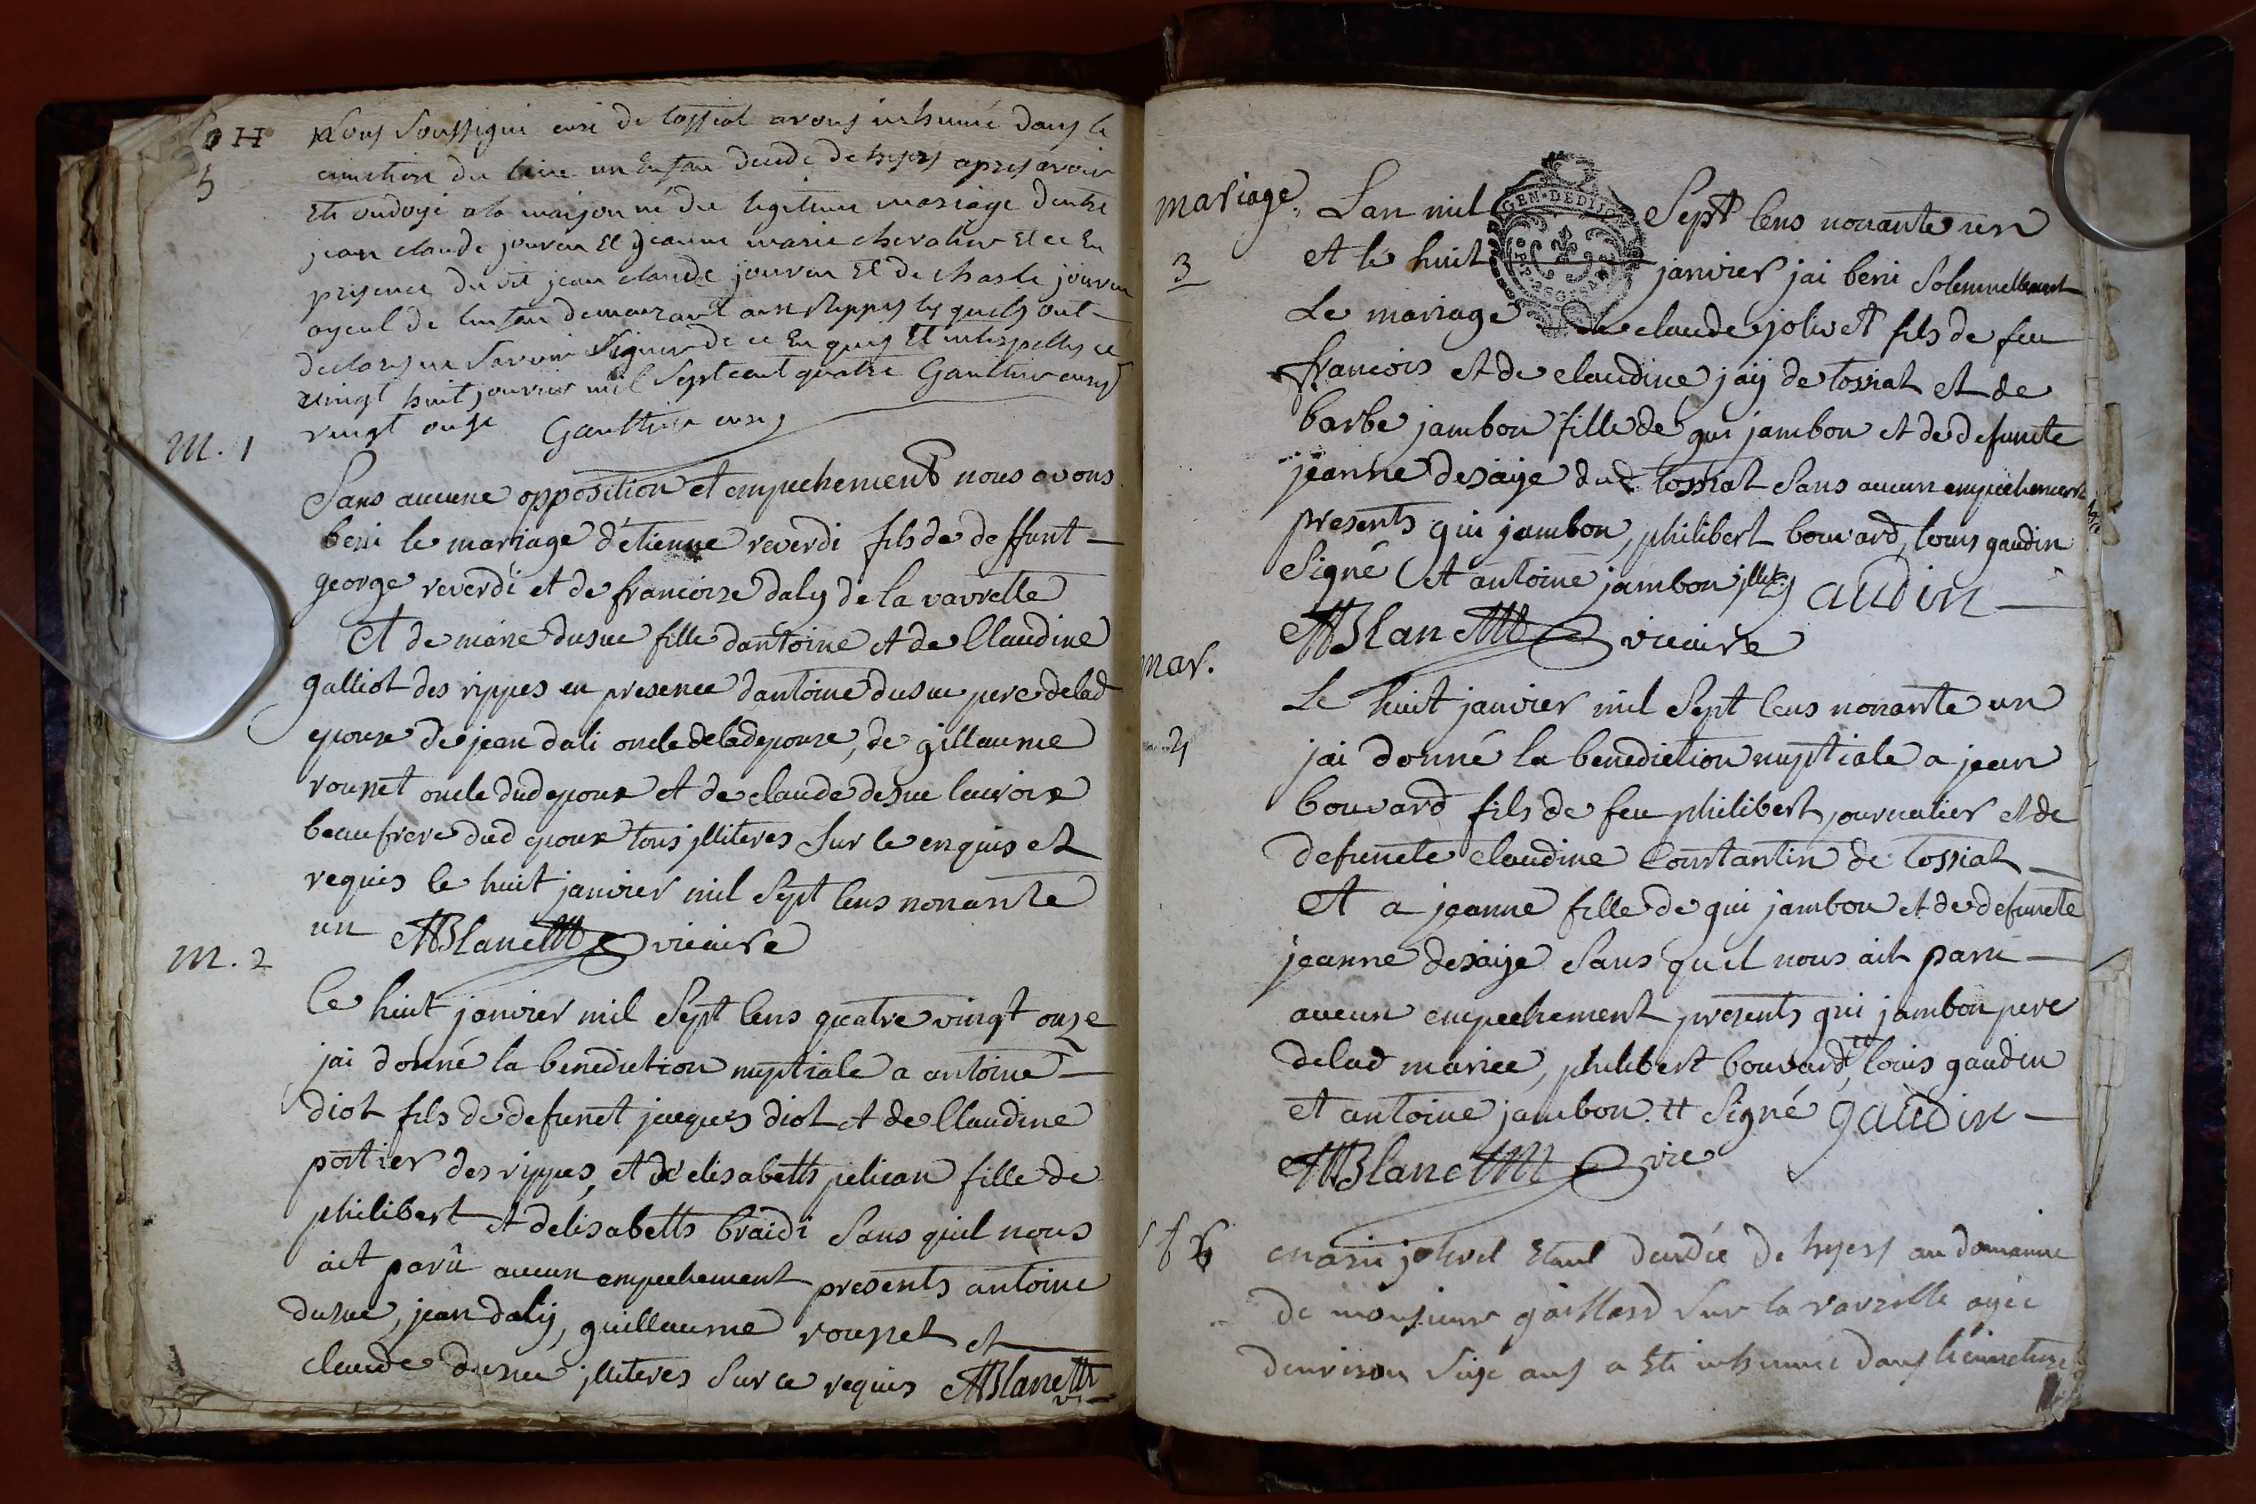 H
5
Nous Soussigné curé de tossiat avons inhumé dans le
cimetiere du lieu un Enfan decedé de hyers apres avoir
Eté ondoyé a la maison né du legitime mariage d'entre
jean claude jouvan Et jeanne marie chevalier Et ce En
presence du dit jean claude jouvan Et de charle jouvan
ayeul de lenfan demeurant aux Rippes les quels ont
declares ne Savoir Signer de ce Enquis Et interpelles ce
vingt huit janvier mil Sept cent quatre Gauthier curé
vingt onze Gauthier curé
M. 1
Sans aucune opposition et empechement nous avons
beni le mariage d'étienne reverdi fils de deffunt
george reverdi et de francoise daly de la vavrette
Et de marie dusuc fille dantoine et de Claudine
galliot des rippes en presence dantoine dusuc pere delad
epouse de jean dali oncle delad epouse, de gillaume
rousset oncle dud epoux et de claude dusuc
beaufrere dud epoux tous illiteres sur ce enquis et
requis le huit janvier mil Sept Cens nonante
un Blanc vicaire
M. 2
Ce huit janvier mil Sept Cens quatre vingt onze
jai donné la benediction nuptiale a antoine
diot fils de defunct jacques diot et de Claudine
portier des rippes, et d'elisabeth pelican fille de
philibert et delisabeth braidi Sans quil nous
ait parû aucun empechement presents antoine
dusuc, jean daly, guillaume rousset et
claude dusuc illiteres Sur ce requis Blanc
vic
mariage
3
GEN·DEDIJON
Lan mil Sept Cens nonante un
et le huit janvier jai beni Solemnellement
Le mariage de claude jolivet fils de feu
francois et de claudine jay de tossiat et de
barbe jambon fille de gui jambon et de defuncte
jeanne desaije dud tossiat Sans aucun empechement
presents gui jambon, philibert bouvard, louis gaudin
Signé et antoine jambon gaudin
Blanc vicaire
mar.
4
Le huit janvier mil Sept Cens nonante un
jai donné la benediction nuptiale a jean
bouvard fils de feu philibert journalier et de
defuncte claudine Constantin de tossiat
Et a jeanne fille de gui jambon et de defuncte
jeanne desaije Sans quil nous ait paru
aucun empechement presents gui jambon pere
delad mariée, philibert bouvard, louis gaudin
et antoine jambon. # Signé gaudin
Blanc vic
6
marie jolivet Etant decedée de hyers au domaine
de monsieur gaillard Sur la vavrette agée
denviron Seize ans a Eté inhumée dans le cimetiere